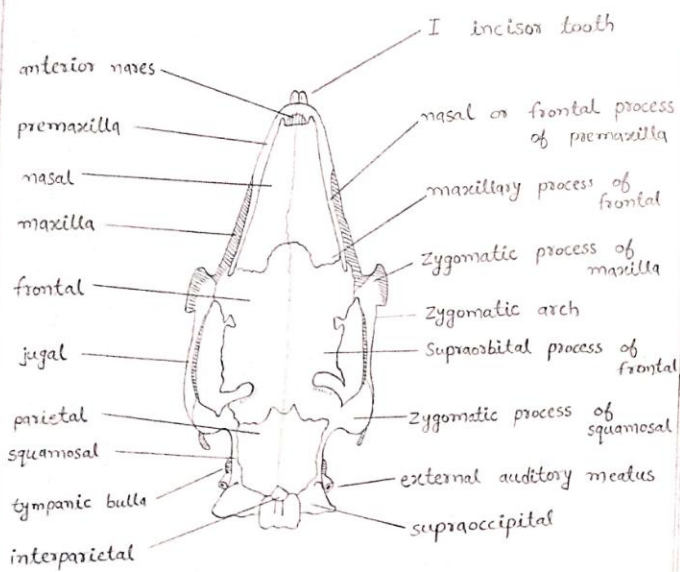 I incisor tooth
anterior nares
premaxilla
nasal
maxilla
frontal
jugal
parietal
squamosal
tympanic bulla
interparietal
nasal or frontal process
of premaxilla
maxillary process of
frontal
zygomatic process of
maxilla
zygomatic arch
Supraorbital process of
frontal
zygomatic process of
squamosal
external auditory meatus
supraoccipital